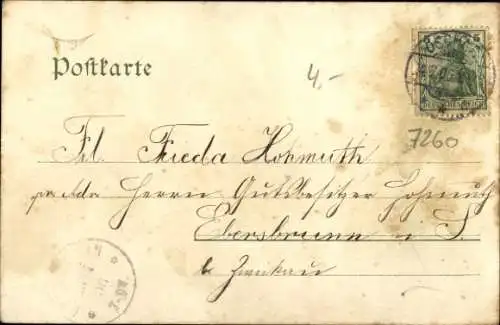 Postkarte
4,-
7260
Frl. Frieda Hohmuth
pr. Adr. Herrn Gutsbesitzer Hohmuth
Ebersbrunn i. S.
b. Zwickau